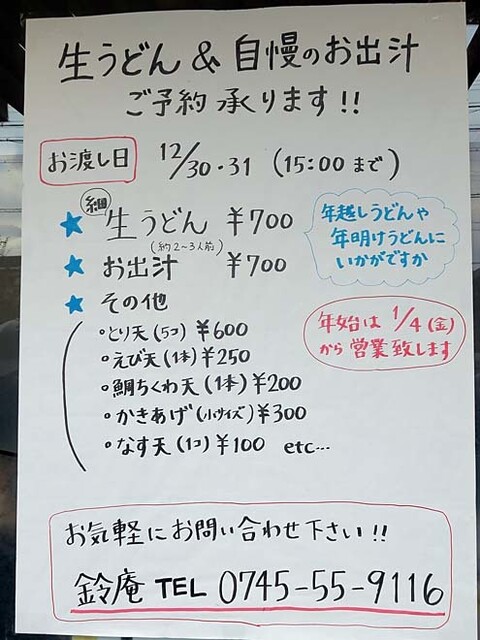 生うどん & 自慢のお出汁
ご予約承ります!!
お渡し日 12/30・31 (15:00まで)
★ 細 生うどん ¥700
(約2~3人前)
★ お出汁 ¥700
年越しうどんや
年明けうどんに
いかがですか
★ その他
・とり天(5コ) ¥600
・えび天(1本) ¥250
・鯛ちくわ天(1本) ¥200
・かきあげ(小サイズ) ¥300
・なす天(1コ) ¥100 etc…
年始は 1/4(金)
から営業致します
お気軽にお問い合わせ下さい!!
鈴庵 TEL 0745-55-9116